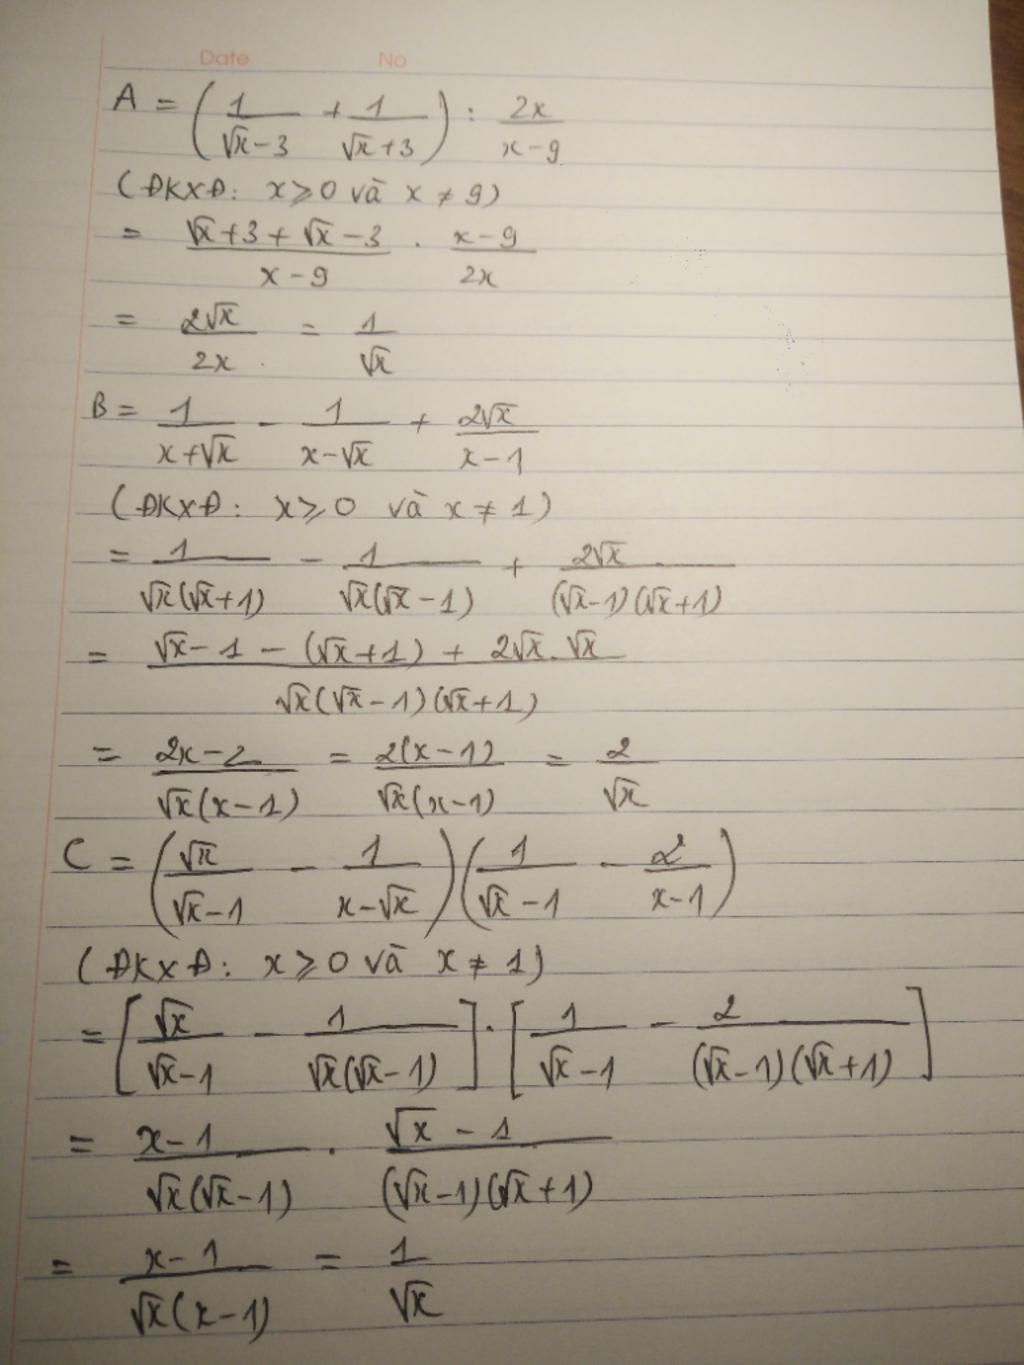 Date No
A = (1/(√x-3) + 1/(√x+3)) : 2x/(x-9)
(ĐKXĐ: x ⩾ 0 và x ≠ 9)
= (√x+3+√x-3)/(x-9) . (x-9)/2x
= 2√x/2x = 1/√x
B = 1/(x+√x) - 1/(x-√x) + 2√x/(x-1)
(ĐKXĐ: x ⩾ 0 và x ≠ 1)
= 1/(√x(√x+1)) - 1/(√x(√x-1)) + 2√x/((√x-1)(√x+1))
= (√x-1-(√x+1)+2√x.√x)/(√x(√x-1)(√x+1))
= (2x-2)/(√x(x-1)) = 2(x-1)/(√x(x-1)) = 2/√x
C = (√x/(√x-1) - 1/(x-√x))(1/(√x-1) - 2/(x-1))
(ĐKXĐ: x ⩾ 0 và x ≠ 1)
= [√x/(√x-1) - 1/(√x(√x-1))] . [1/(√x-1) - 2/((√x-1)(√x+1))]
= (x-1)/(√x(√x-1)) . (√x-1)/((√x-1)(√x+1))
= (x-1)/(√x(x-1)) = 1/√x